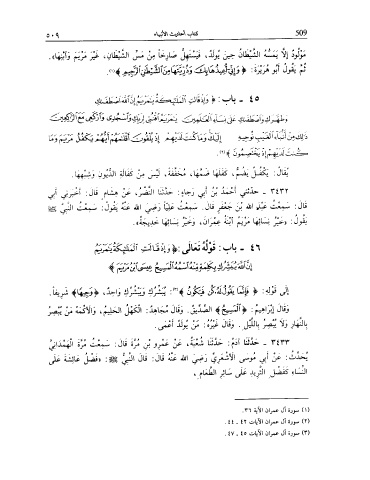 ٥٠٩ كتاب أحاديث الأنبياء 509
مَوْلُودٌ إلّا يَمَسُّهُ الشَّيْطَانُ حِينَ يُولَدُ، فَيَسْتَهِلُّ صَارِخاً مِنْ مَسِّ الشَّيْطَانِ، غَيْرَ مَرْيَمَ وَابْنِهَا».
ثُمَّ يَقُولُ أَبُو هُرَيْرَةَ: ﴿وَإِنِّي أُعِيذُهَا بِكَ وَذُرِّيَّتَهَا مِنَ الشَّيْطَانِ الرَّجِيمِ﴾(١).
٤٥ - باب: ﴿وَإِذْ قَالَتِ الْمَلَائِكَةُ يَا مَرْيَمُ إِنَّ اللَّهَ اصْطَفَاكِ
وَطَهَّرَكِ وَاصْطَفَاكِ عَلَى نِسَاءِ الْعَالَمِينَ يَا مَرْيَمُ اقْنُتِي لِرَبِّكِ وَاسْجُدِي وَارْكَعِي مَعَ الرَّاكِعِينَ
ذَلِكَ مِنْ أَنْبَاءِ الْغَيْبِ نُوحِيهِ إِلَيْكَ وَمَا كُنْتَ لَدَيْهِمْ إِذْ يُلْقُونَ أَقْلَامَهُمْ أَيُّهُمْ يَكْفُلُ مَرْيَمَ وَمَا
كُنْتَ لَدَيْهِمْ إِذْ يَخْتَصِمُونَ﴾(٢)
يُقَالُ: يَكْفُلُ يَضُمُّ، كَفَلَهَا ضَمَّهَا، مُخَفَّفَةً، لَيْسَ مِنْ كَفَالَةِ الدُّيُونِ وَشِبْهِهَا.
٣٤٣٢ - حدّثني أَحْمَدُ بْنُ أَبي رجاءٍ: حَدَّثَنَا النَّضْرُ، عَنْ هِشَامٍ قَالَ: أَخْبَرَنِي أَبِي
قَالَ: سَمِعْتُ عَبْدَ اللهِ بْنَ جَعْفَرٍ قَالَ: سَمِعْتُ عَلِيّاً رَضِيَ اللهُ عَنْهُ يَقُولُ: سَمِعْتُ النَّبِيَّ ﷺ
يَقُولُ: «خَيْرُ نِسَائِهَا مَرْيَمُ ابْنَةُ عِمْرَانَ، وَخَيْرُ نِسَائِهَا خَدِيجَةُ».
٤٦ - باب: قَوْلُهُ تَعَالَى: ﴿وَإِذْ قَالَتِ الْمَلَائِكَةُ يَا مَرْيَمُ
إِنَّ اللَّهَ يُبَشِّرُكِ بِكَلِمَةٍ مِنْهُ اسْمُهُ الْمَسِيحُ عِيسَى ابْنُ مَرْيَمَ
إِلَى قَوْلِهِ: ﴿فَإِنَّمَا يَقُولُ لَهُ كُنْ فَيَكُونُ﴾(٣): يُبَشِّرُكِ وَيَبْشُرُكِ وَاحِدٌ، ﴿وَجِيهاً﴾ شَرِيفاً.
وَقَالَ إِبْرَاهِيمُ: ﴿الْمَسِيحُ﴾ الصِّدِّيقُ. وَقَالَ مُجَاهِدٌ: الْكَهْلُ الحَلِيمُ، وَالأَكْمَهُ مَنْ يُبْصِرُ
بِالنَّهَارِ وَلَا يُبْصِرُ بِاللَّيْلِ. وَقَالَ غَيْرُهُ: مَنْ يُولَدُ أَعْمَى.
٣٤٣٣ - حَدَّثَنَا آدَمُ: حَدَّثَنَا شُعْبَةُ، عَنْ عَمْرِو بْنِ مُرَّةَ قَالَ: سَمِعْتُ مُرَّةَ الْهَمْدَانِيَّ
يُحَدِّثُ: عَنْ أَبِي مُوسى الأَشْعَرِيِّ رَضِيَ اللهُ عَنْهُ قَالَ: قَالَ النَّبِيُّ ﷺ: «فَضْلُ عَائِشَةَ عَلَى
النِّسَاءِ كَفَضْلِ الثَّرِيدِ عَلَى سَائِرِ الطَّعَامِ،
(١) سورة آل عمران الآية ٣٦.
(٢) سورة آل عمران الآيات ٤٢ ـ ٤٤.
(٣) سورة آل عمران الآيات ٤٥ ـ ٤٧.